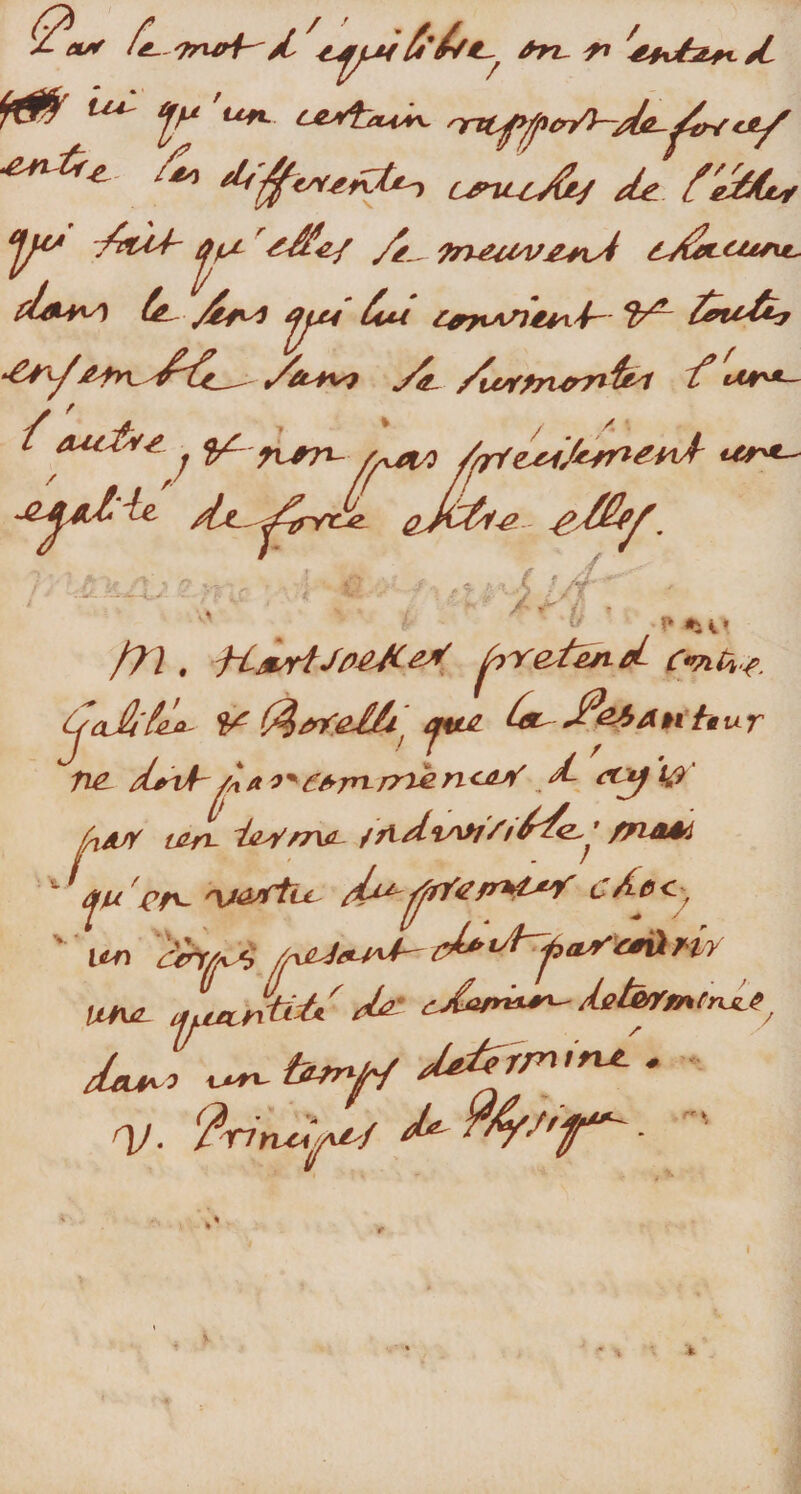 Par le mot d'équilibre, on n'entend
ici qu'un certain rapport de forces
entre les differentes couches de l'éther
qui fait qu'elles se meuvent chacune
dans le sens qui lui convient & toutes
ensemble sans se surmonter l'une
l'autre, & non pas précisément une
égalité de force entre elles.
mouvement expansif
M. Hartsoeker pretend contre
Galilée & Borelli, que la Pesanteur
ne doit pas commencer d'agir
par un terme indivisible; mais
qu'en vertu du premier choc,
un corps pesant doit parcourir
une quantité de chemin determinée,
dans un temps determiné.
V. Principes de Physique.